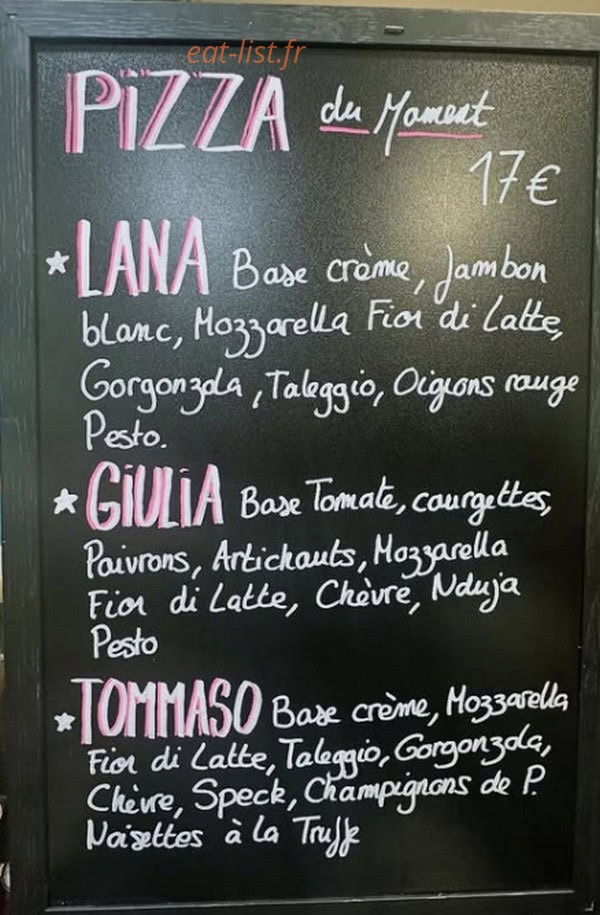 eat-list.fr
PiZZA du Moment
17€
★ LANA Base crème, Jambon
blanc, Mozzarella Fior di Latte,
Gorgonzola, Taleggio, Oignons rouge
Pesto.
★ GiULiA Base Tomate, courgettes,
Poivrons, Artichauts, Mozzarella
Fior di Latte, Chèvre, Nduja
Pesto
★ TOMMASO Base crème, Mozzarella
Fior di Latte, Taleggio, Gorgonzola,
Chèvre, Speck, Champignons de P.
Noisettes à la Truffe